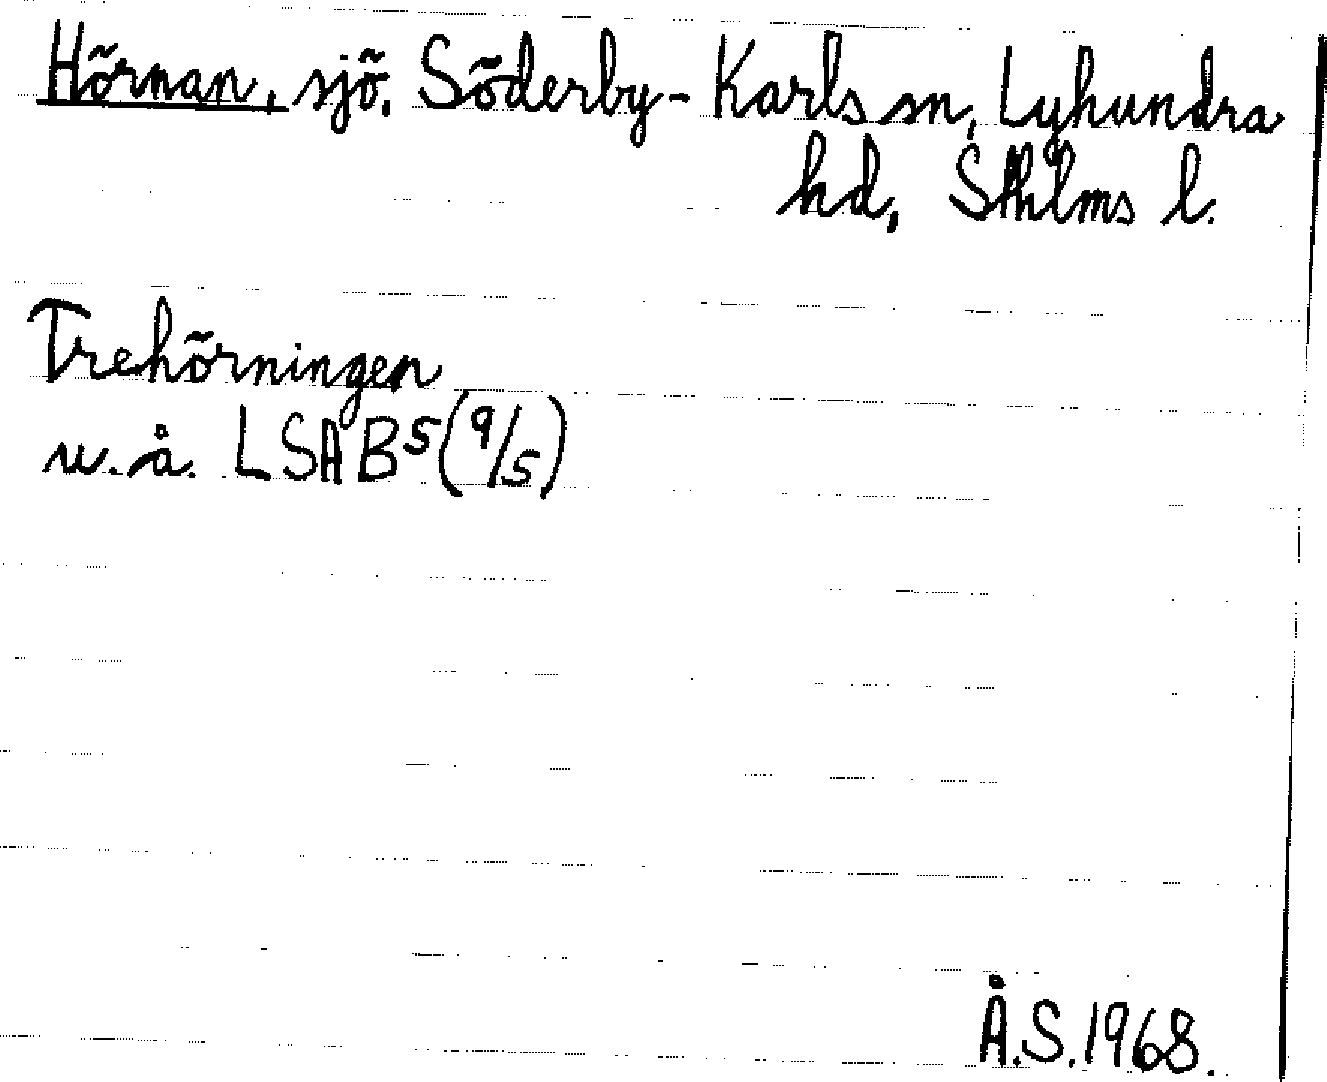 Hörnan, sjö. Söderby-Karls sn, Lyhundra
hd, Sthlms l.
Trehörningen
u.å. LSA B5(9/5)
Å.S.1968.